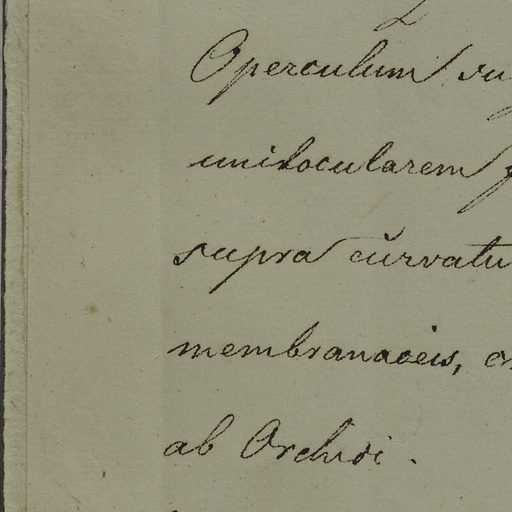 Operculum
unilocularem
supra curvatu
membranaceis,
ab Orchidi.